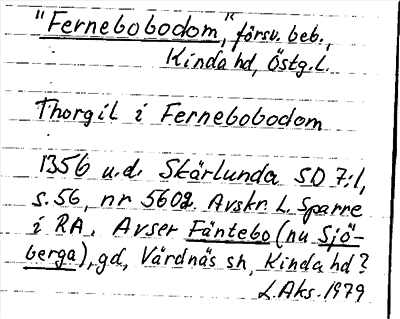 "Fernebobodom," försv. beb.,
Kinda hd, Östg. l.
Thorgil i Fernebobodom
1356 u.d. Skärlunda SD 7:1,
s. 56, nr 5602. Avskr. L. Sparre
i RA. Avser Fäntebo (nu Sjö-
berga), gd, Värdnäs sn, Kinda hd?
L. Aks. 1979